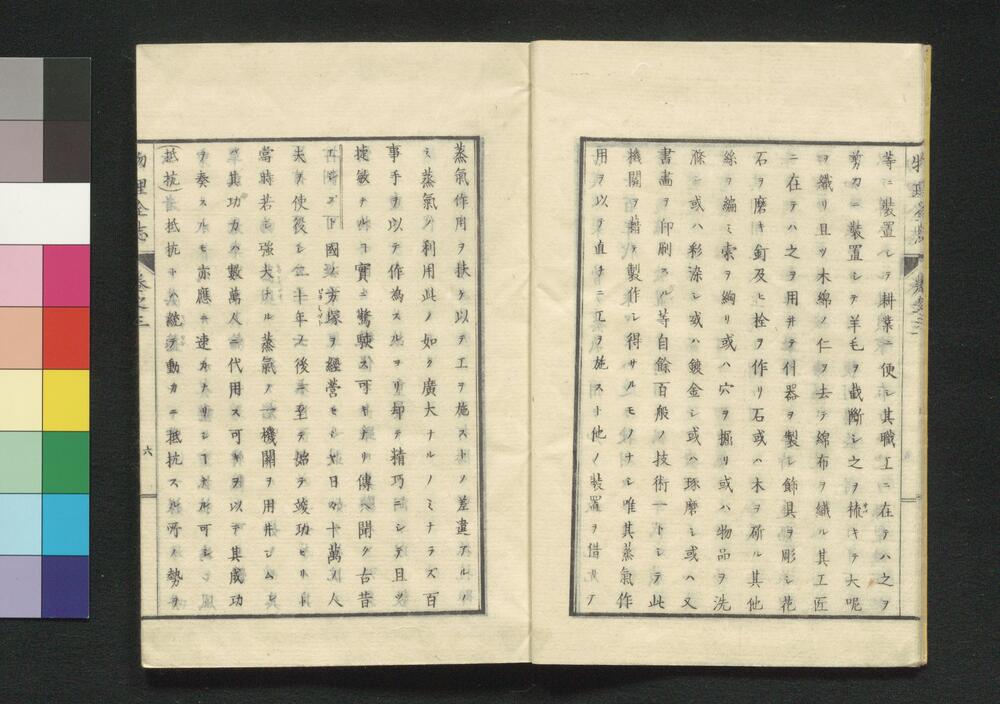 物理全志 卷之三
等ニ裝置レテ耕業ニ便シ其職工ニ在テハ之ヲ
剪刀ニ裝置シテ羊毛ヲ截斷シ之ヲ梳キテ大呢
ヲ織リ且ツ木綿ノ仁ヲ去テ綿布ヲ織ル其工匠
ニ在テハ之ヲ用井テ什器ヲ製シ飾具ヲ彫シ花
石ヲ磨キ釘及ヒ栓ヲ作リ石或ハ木ヲ斫ル其他
絲ヲ編ミ索ヲ綯リ或ハ穴ヲ掘リ或ハ物品ヲ洗
滌シ或ハ彩染シ或ハ鍍金シ或ハ琢磨シ或ハ又
書畵ヲ印刷スル等自餘百般ノ技術一トシテ此
機關ヲ藉テ製作シ得サルモノナシ唯其蒸氣作
用ヲ以テ直チニ工ヲ施スト他ノ裝置ヲ借リテ
蒸氣作用ヲ扶ケ以テ工ヲ施ストノ差違アルノ
ミ蒸氣ノ利用此ノ如ク廣大ナルノミナラズ百
事手ヲ以テ作為スルヨリ却テ精巧ニシテ且ツ
捷敏ナルヿ實ニ驚駭ス可キナリ傳ヘ聞ク古昔
國ノ方塚ヲ經營セシヤ日々十萬ノ人
夫ヲ使役シ二十年ノ後ニ至テ始テ竣功セリト
當時若シ強大ナル蒸氣ノ一機關ヲ用井シムレ
其功力ハ數萬人ニ代用ス可キヲ以テ其成功
ヲ奏スルモ亦應ニ速カナリシヿ知ル可シ
抵抗 抵抗トハ統テ動力ニ抵抗スル所ノ勢ヲ
物理全志 卷之三 六